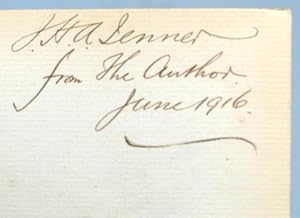 J. H. A. Jenner
from The Author.
June 1916.